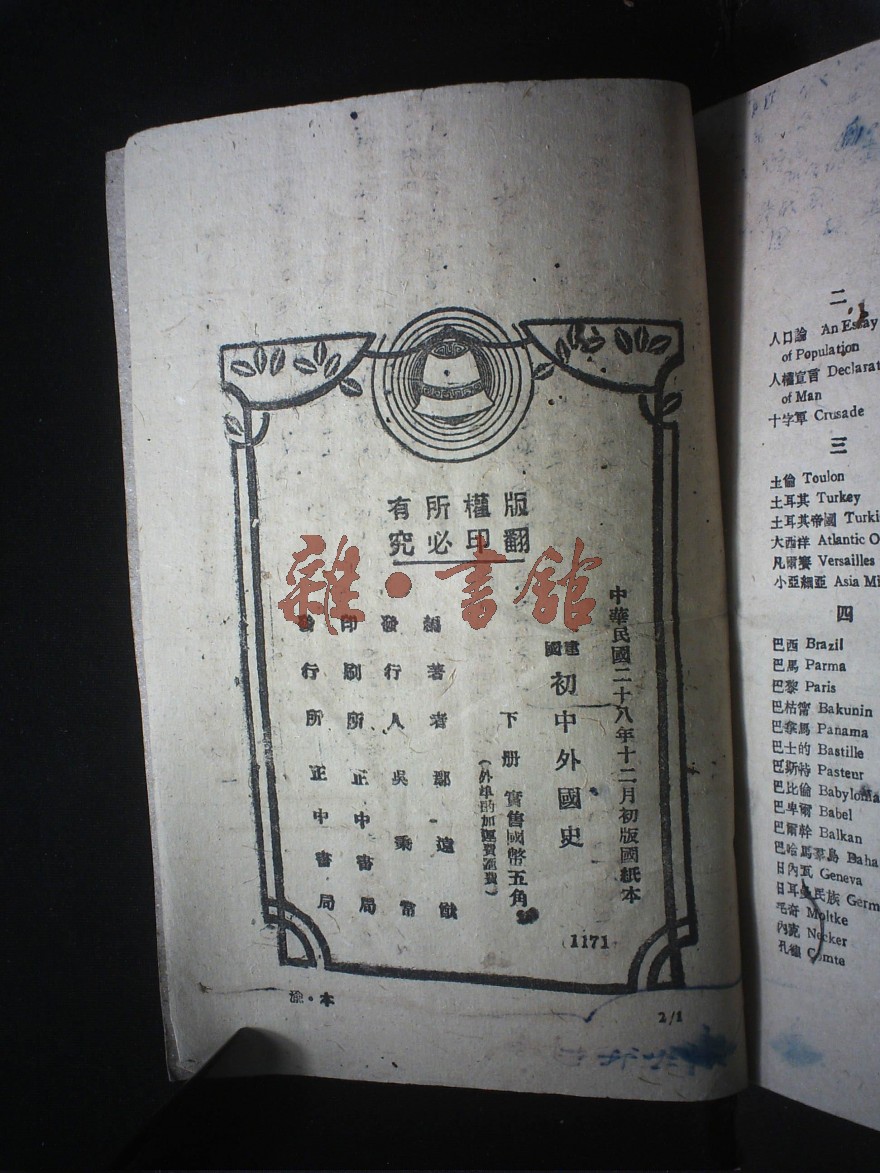 版權所有
翻印必究
中華民國二十八年十二月初版國紙本
建國
初中外國史
下册 實售國幣五角
(外埠酌加運費滙費)
編著者 鄭
發行人 吳秉常
印刷所 正中書局
發行所 正中書局
(1171)
渝·本
2/1
雜·書館
二
人口論 An Essay
of Population
人權宣言 Declarat
of Man
十字軍 Crusade
三
土倫 Toulon
土耳其 Turkey
土耳其帝國 Turki
大西洋 Atlantic O
凡爾賽 Versailles
小亞細亞 Asia Mi
四
巴西 Brazil
巴馬 Parma
巴黎 Paris
巴枯甯 Bakunin
巴拿馬 Panama
巴士的 Bastille
巴斯特 Pasteur
巴比倫 Babylonia
巴卑爾 Babel
巴爾幹 Balkan
巴哈馬羣島 Baha
日內瓦 Geneva
日耳曼民族 Germ
毛奇 Moltke
內克 Necker
孔德 Comte